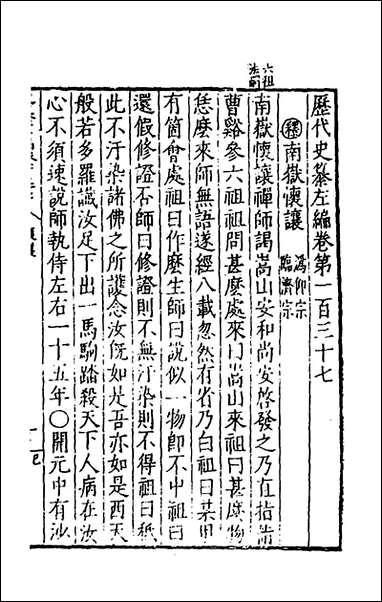 六祖
法嗣
歷代史纂左編卷第一百三十七
釋南嶽懷讓
溈仰宗
臨濟宗
南嶽懷讓禪師謁嵩山安和尚安啓發之乃直指詣
曹谿參六祖祖問甚麼處來曰嵩山來祖曰甚麼物
恁麼來師無語遂經八載忽然有省乃白祖曰某甲
有箇會處祖曰作麼生師曰說似一物卽不中祖曰
還假修證否師曰修證則不無汙染則不得祖曰秖
此不汙染諸佛之所護念汝旣如是吾亦如是西天
般若多羅讖汝足下出一馬駒踏殺天下人病在汝
心不須速說師執侍左右一十五年〇開元中有沙